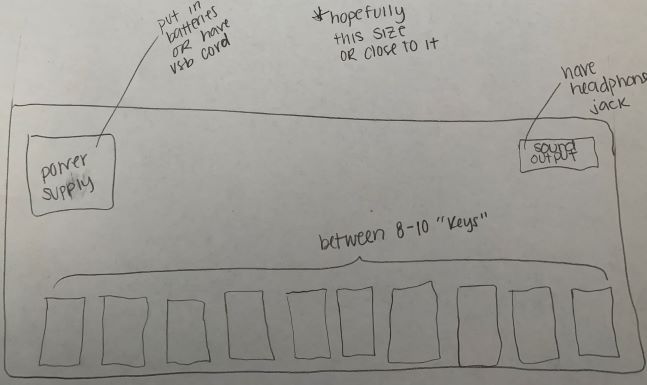 put in
batteries
OR have
usb cord
*hopefully
this size
OR close to it
have
headphone
jack
power
supply
sound
output
between 8-10 "keys"